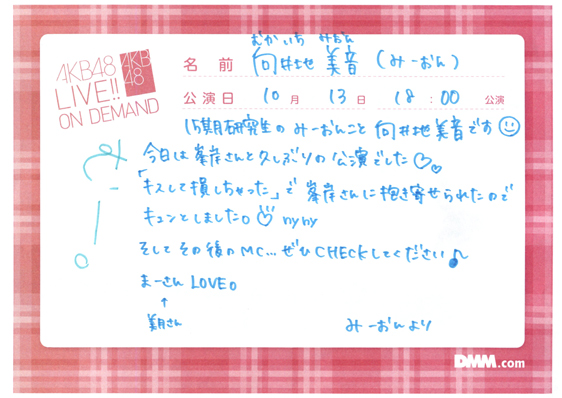 AKB48
LIVE!!
ON DEMAND
AKB
48
むかいち みおん
名 前 向井地 美音 (みーおん)
公演日 10月 13日 18:00 公演
15期研究生のみーおんこと 向井地美音です
今日は峯岸さんと久しぶりの公演でした♡♡
「キスして損しちゃった」で 峯岸さんに抱き寄せられたので
キュンとしました。♡ nyny
そして その後のMC… ぜひCHECKしてください♪
まーさん LOVE。
↑
美月さん
みーおんより
み
ー
。
DMM.com